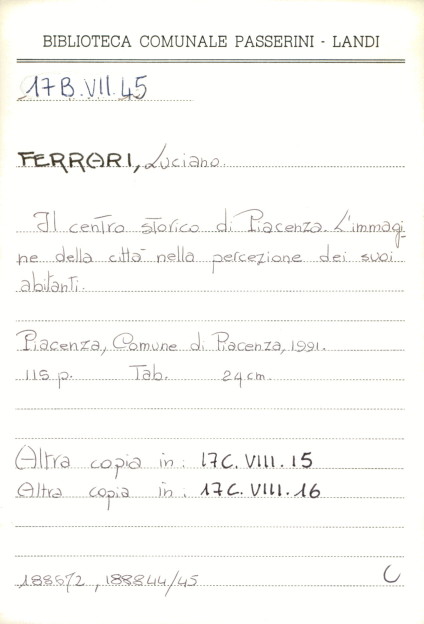 BIBLIOTECA COMUNALE PASSERINI - LANDI
17B.VII.45
FERRARI, Luciano.
Il centro storico di Piacenza. L'immagi-
ne della città nella percezione dei suoi
abitanti.
Piacenza, Comune di Piacenza, 1991.
115 p. Tab. 24 cm.
Altra copia in: 17C.VIII.15
Altra copia in: 17C.VIII.16
188672, 188844/45 C